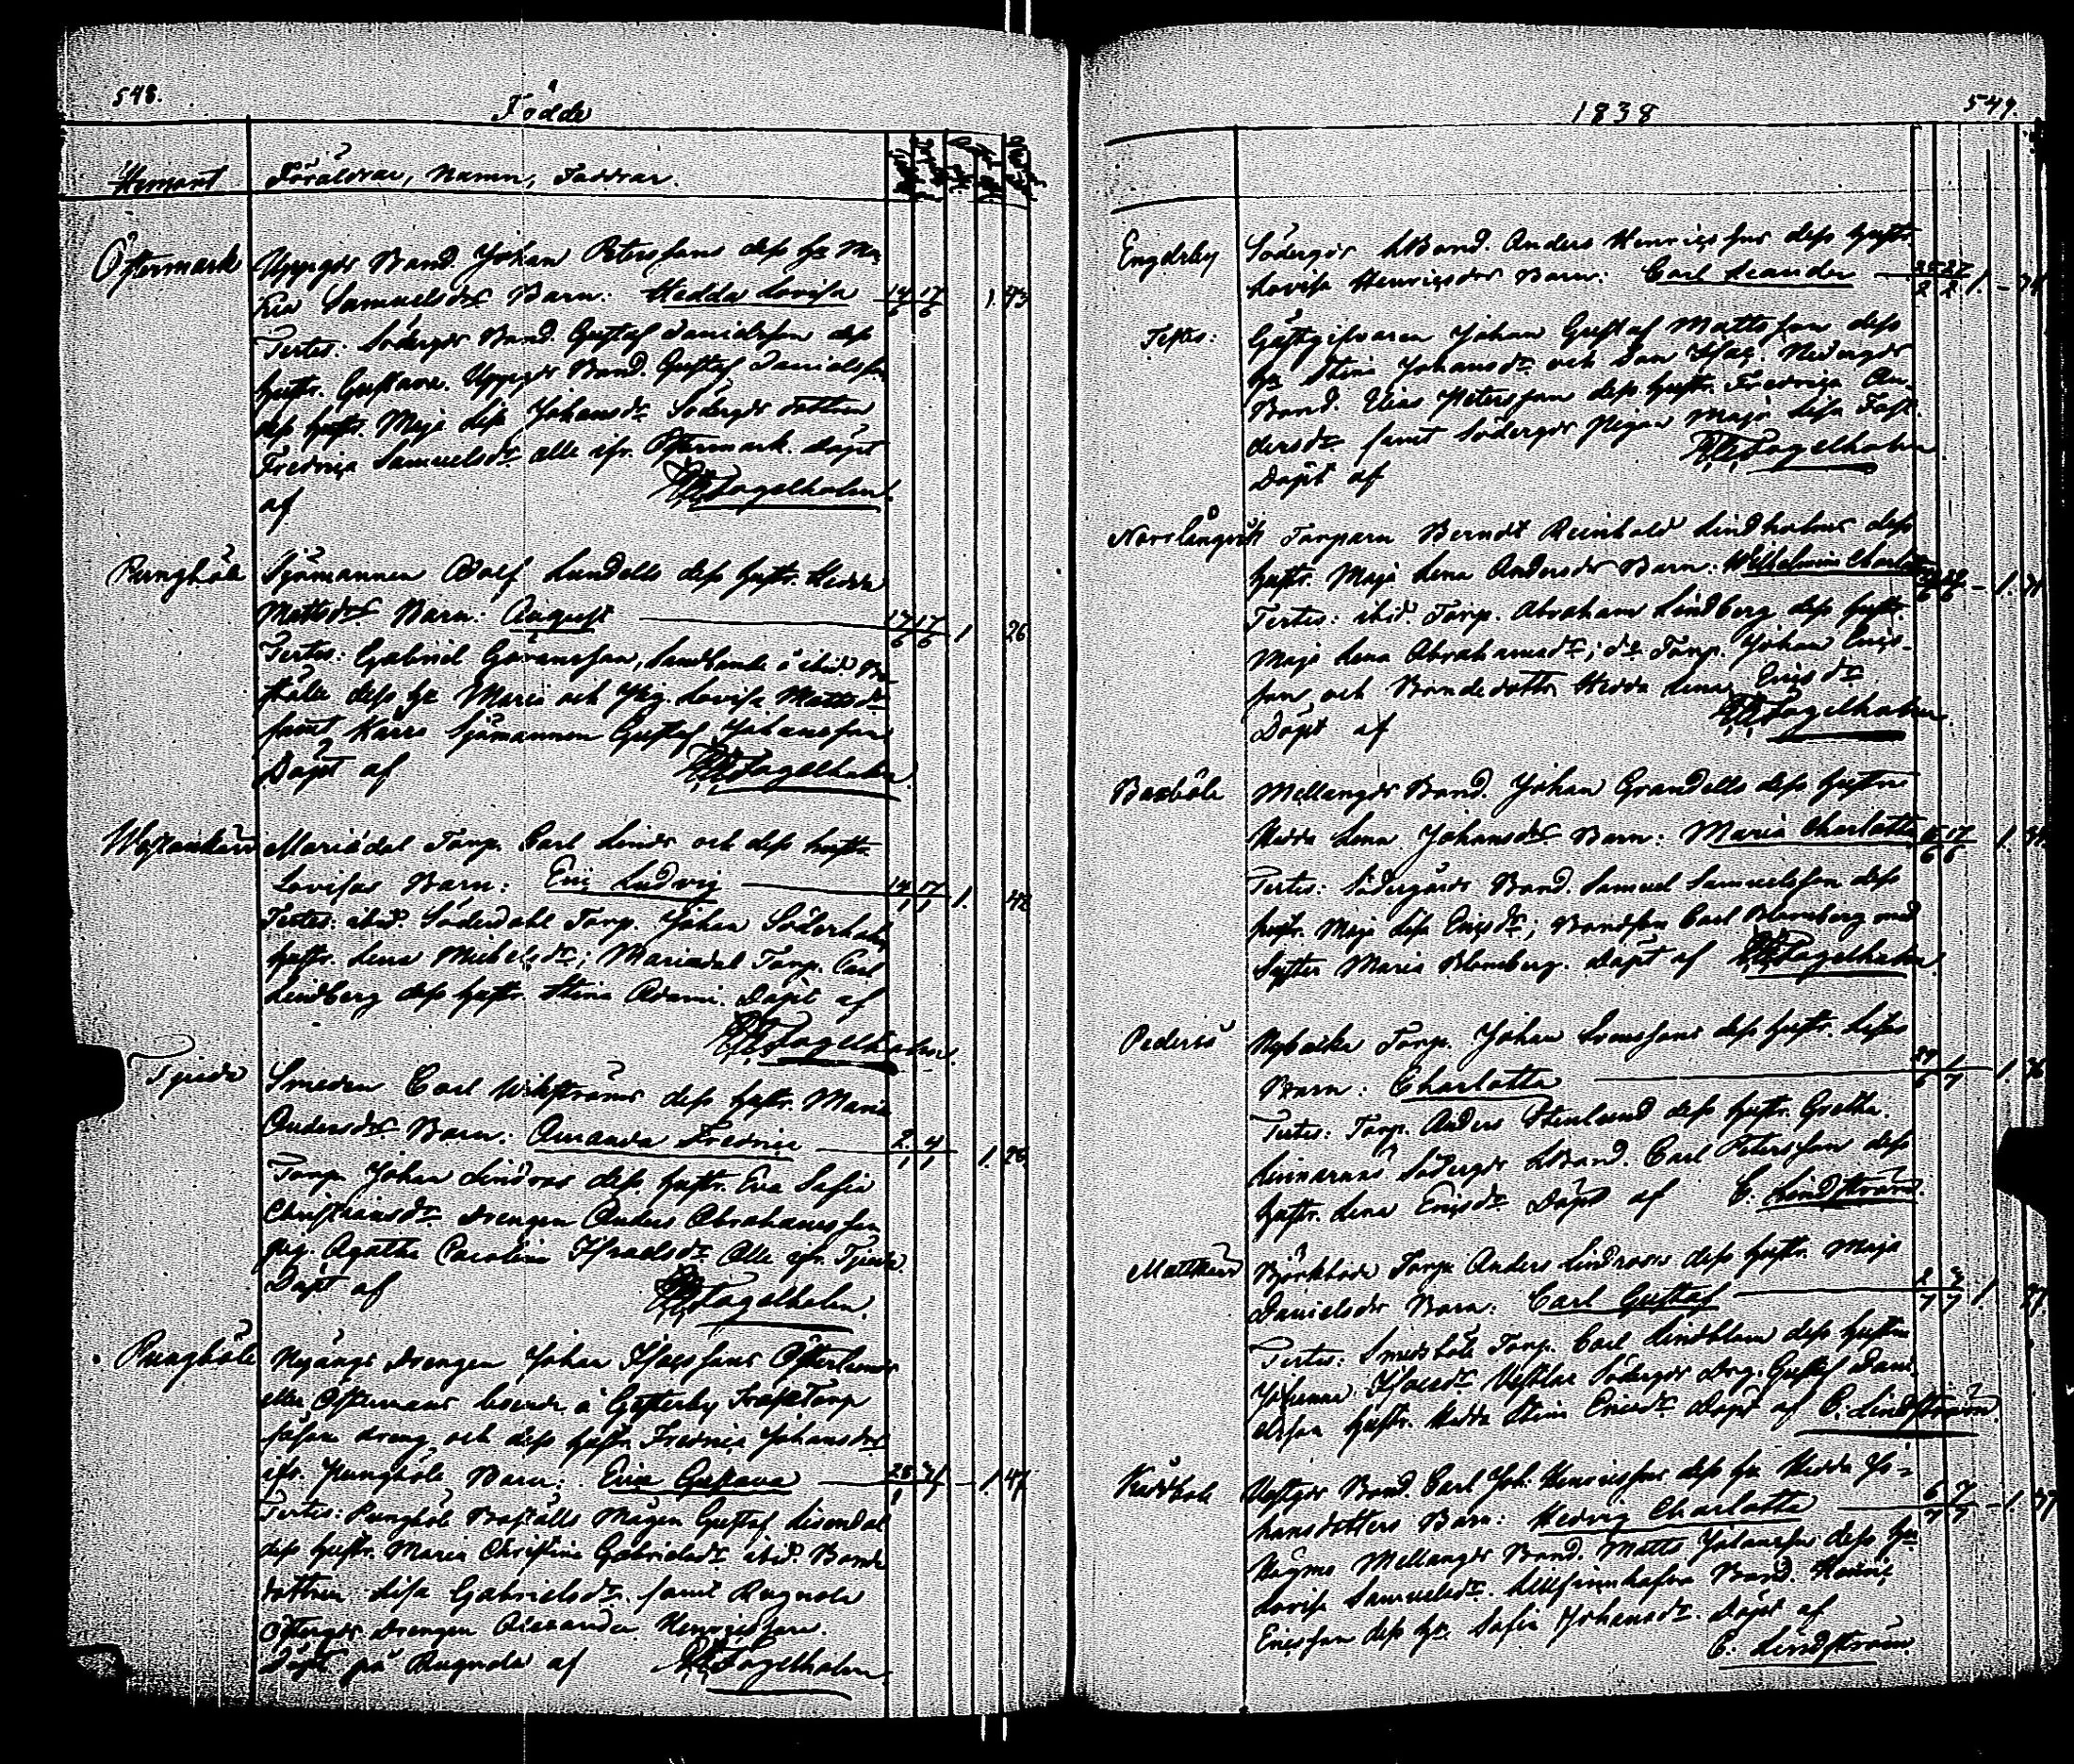 548.
Födde
Hemort
Föräldrar, Namn, Faddrar.
Östermark
Uppgds Bond. Johan Peterssons dess h. Ma-
ria Samuelsdrs Barn: Hedda Lovisa 14/6 17/6 1. 43
Testes: Södergds Bond. Gustaf Danielsson dess
hustr. Gustava. Uppgds Bond. Gustaf Danielsson
dess hustr. Maja Lisa Johansdr Södergds dottren
Fredrica Samuelsdr alle ifr. Östermark. Döpt
af Fogelholm.
Pungböle
Sjömannen Adolf Lundells dess hustr. Hedda
Mattsdrs Barn: August 17/6 17/6 1 26
Testes: Gabriel Göransson, Landbonde å ibid. Bo-
ställe dess h. Maria och Pig. Lovisa Mattsdr
samt Kärrs Sjömannen Gustaf Johansson
Döpt af Fogelholm
Westankärr
Mariedal Torp. Carl Linds och dess hustr.
Lovisas Barn: Eric Ludvig 14/1 17/1 1. 42
Testes: ibid. Söderdahl Torp. Johan Söderholm
hustr. Lena Michelsdr; Mariedal Torp. Carl
Lindberg dess hustr. Stina Adami. Döpt af
Fogelholm.
Tjuda
Smeden Carl Wikströms dess hustr. Maria
Andersdrs Barn: Amanda Fredrica 2/1 4/1 1. 26
Torp. Johan Lindroos dess hustr. Eva Sofia
Christiansdr Drengen Anders Abrahamsson
pig. Agatha Carolina Israelsdr Alle ifr. Tjuda.
Döpt af Fogelholm.
Pungböle
Nygångs Drengen Johan Isacssons Österlund
eller Östermans boende å Genterby Torp
dreng och dess hustr. Fredrica Johansdrs
ifr. Pungböle Barn: Erica Gustava 1. 47
Testes: Pungböle Boställs Mågen Gustaf Lisendal
dess hustr. Maria Christina Gabrielsdr ibid. Bonde
dottren Lisa Gabrielsdr. samt Rugnola
Östergds Drengen Alexander Henricsson.
Döpt på Rugnola af Fogelholm.
1838
549.
Engdrby
Södergds LBond. Anders Henricssons dess hustr.
Lovisa Henricsdrs Barn: Carl Leander 25/2 27/2 1.
Testes:
Gästgifvaren Johan Gustaf Mattsson dess
h. Stina Johansdr och Son Isac. Nedergds
Bond. Elias Petersson dess hustr. Fredrica An-
dersdr samt Södergds Pigan Maja Lisa
Döpt af Fogelholm.
Norrlångvik
Torparn Berndt Reinhold Lindholms dess
hustr. Maja Lena Andersdrs Barn: Wilhelmina Charlotta 1.
Testes: ibid. Torp. Abraham Lindberg dess hustr.
Maja Lena Abrahamsdr; do Torp. Johan Erics-
son och Bondedotter Hedda Lena Ericsdr
Döpt af Fogelholm.
Boxböle
Mellangds Bond. Johan Grandells dess hustru
Hedda Lena Johansdrs Barn: Maria Charlotta 15/6 17/6 1.
Testes: Södergårds Bond. Samuel Samuelsson dess
hustr. Maja Lisa Ericsdr; Bondson Carl Blomberg med
Syster Maria Blomberg. Döpt af Fogelholm.
Pedersö
Nybacka Torp. Johan Svenssons dess hustr. Lisas
Barn: Charlotta 1/7 1. 36
Testes: Torp. Anders Stenlund dess hustr. Gretha.
Linnarnäs Södergds LBond. Carl Petersson dess
hustr. Lena Ericsdr Döpt af C. Lindström.
Mattkärr
Björkboda Torp. Anders Lindroos dess hustr. Maja
Danielsdrs Barn: Carl Gustaf 1.
Testes: Smedsböle Torp. Carl Lindblom dess hustru
Johanna Isacsdr Vestlax Södergds Drg. Gustaf Dani-
elsson hustr. Hedda Stina Ericsdr Döpt af C. Lindström.
Vestgds Bond. Carl Joh: Henricssons dess h. Hedda Jo-
hansdotters Barn: Hedvig Charlotta 6/7 7/7 1.
Mellangds Bond. Matts Johansson dess h.
Lovisa Samuelsdr. Bond. Henric
Ericsson dess h. Sofia Johansdr. Döpt af
C. Lindström.